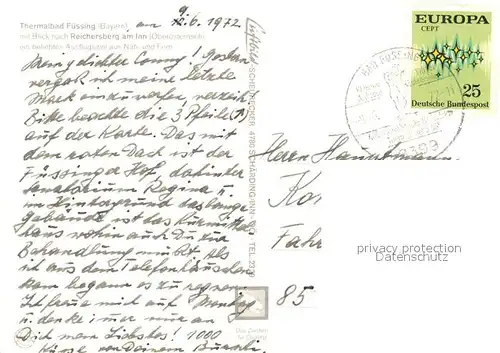 Thermalbad Füssing (Bayern)
mit Blick nach Reichersberg am Inn (Oberösterreich)
ein beliebtes Ausflugsziel aus Nah und Fern
am 9.6.1972
Mein dichter Conny! Gestern
vergaß ich meine letzte
Mark einzuwerfen verzeih!
Bitte beachte die 3 Pfeile (↑)
auf der Karte. Das mit
dem roten Dach ist der
Füssinger Hof, dahinter
Sanatorium Regina u.
im Hintergrund das lange
Gebäude ist das Kurmittel
haus wohin auch Du zur
Behandlung mußt. Als
ich aus dem Telefonhäuschen
kam begann es zu regnen.
Ich freue mich auf Montag
u. denke immer nur an
Dich mein Liebstes! 1000
Küsse von Deinem
Luftbild
4780 SCHÄRDING/INN
TEL.
EUROPA
CEPT
25
Deutsche Bundespost
8399
Herrn Hauptmann
Fahr
85
privacy protection
Datenschutz